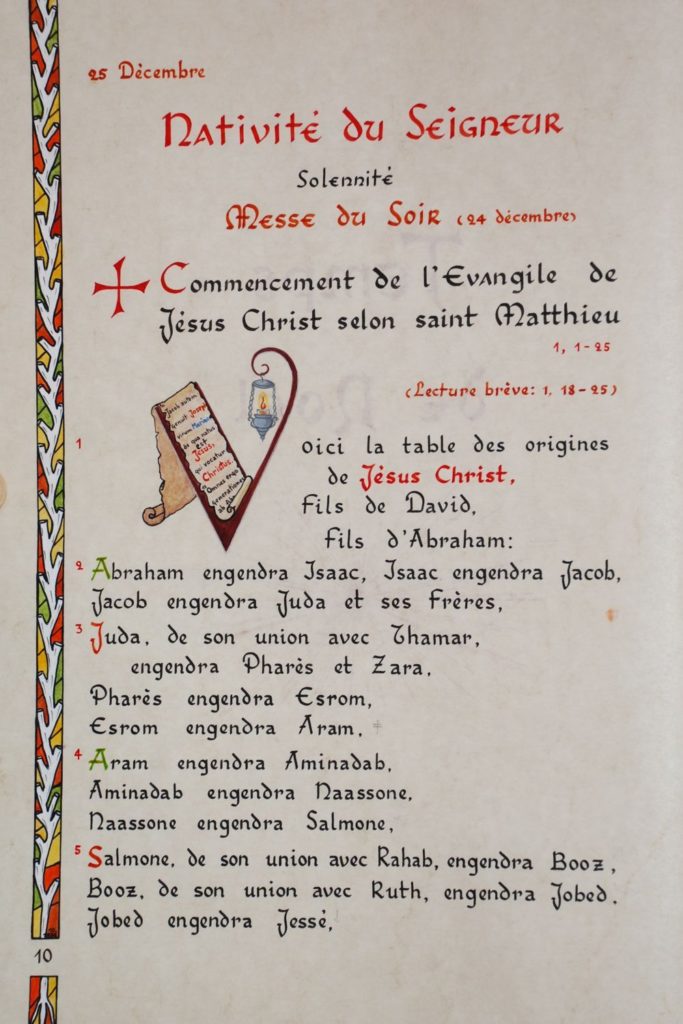 25 Décembre
Nativité du Seigneur
Solennité
Messe du Soir (24 décembre)
Commencement de l'Evangile de
Jésus Christ selon saint Matthieu
1, 1-25
(Lecture brève: 1, 18-25)
Jacob autem
genuit Joseph
virum Mariae
de qua natus
est
Jésus,
qui vocatur
Christus.
Omnes ergo
generationes
ab Abr
1 Voici la table des origines
de Jésus Christ,
Fils de David,
Fils d'Abraham:
2 Abraham engendra Isaac, Isaac engendra Jacob,
Jacob engendra Juda et ses Frères,
3 Juda, de son union avec Thamar,
engendra Pharès et Zara,
Pharès engendra Esrom,
Esrom engendra Aram,
4 Aram engendra Aminadab,
Aminadab engendra Naassone,
Naassone engendra Salmone,
5 Salmone, de son union avec Rahab, engendra Booz,
Booz, de son union avec Ruth, engendra Jobed,
Jobed engendra Jessé,
10